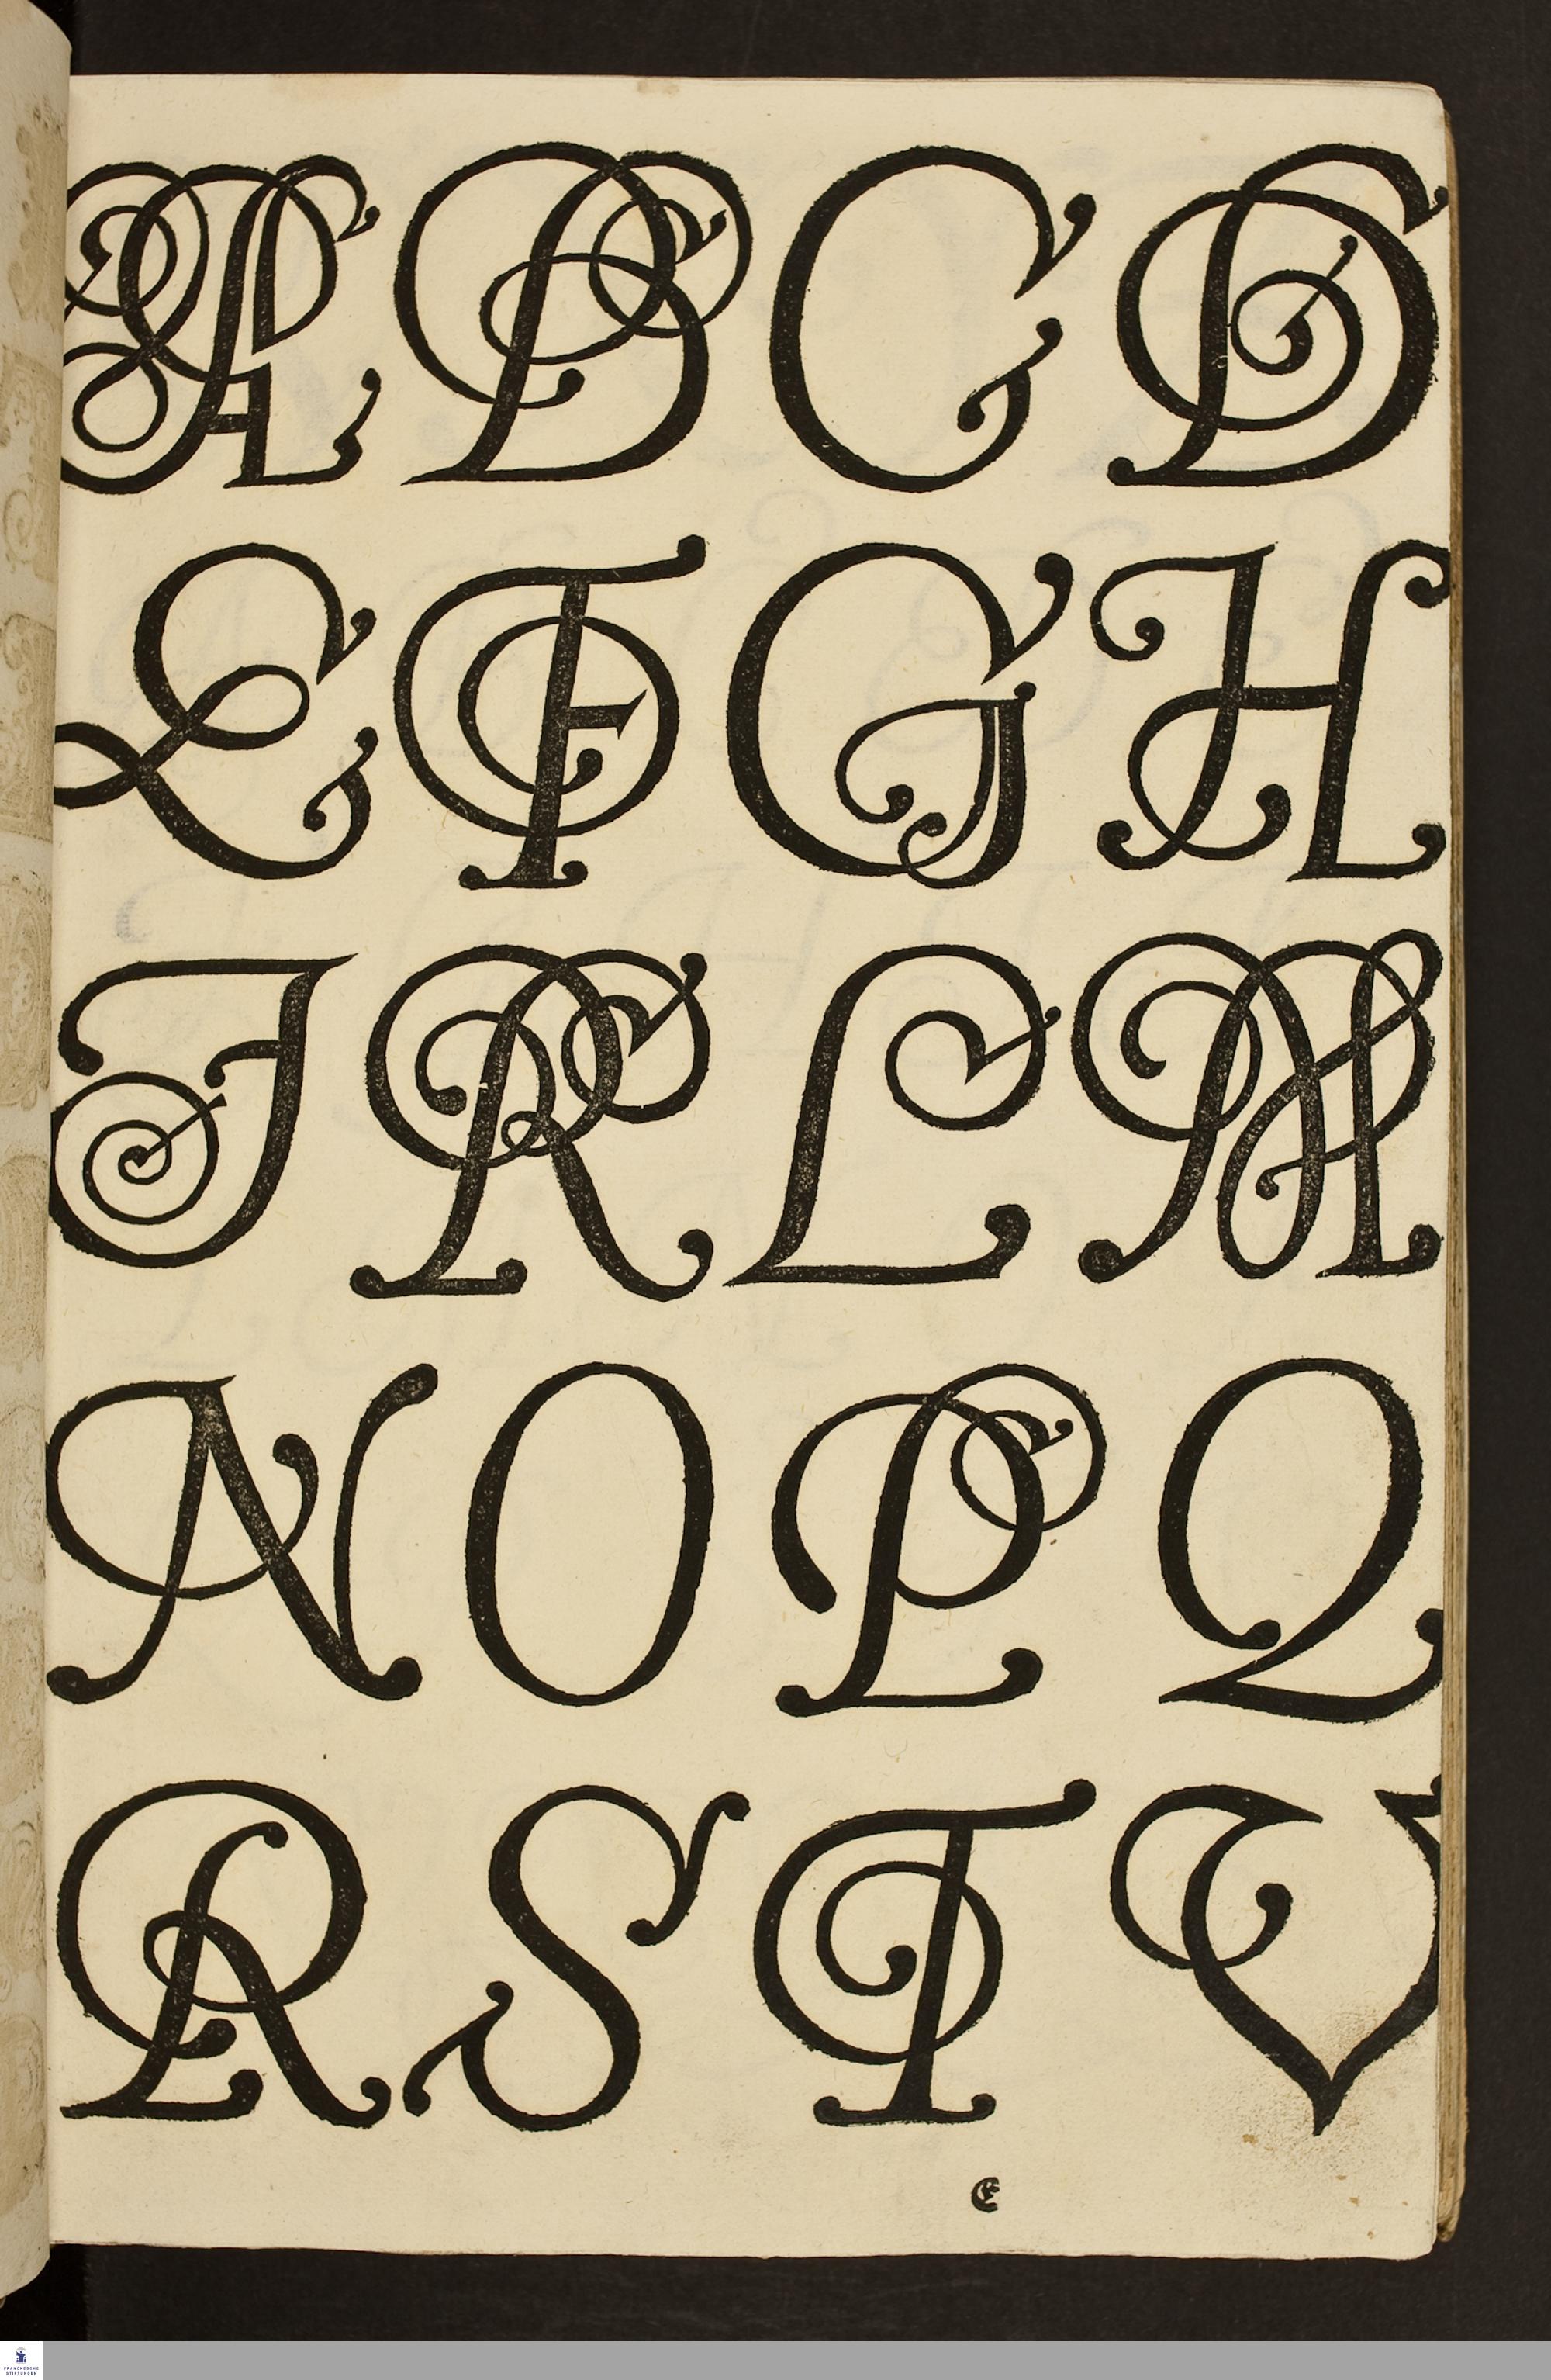 A B C D
E F G H
I K L M
N O P Q
R S T V
E
FRANCKESCHE
STIFTUNGEN